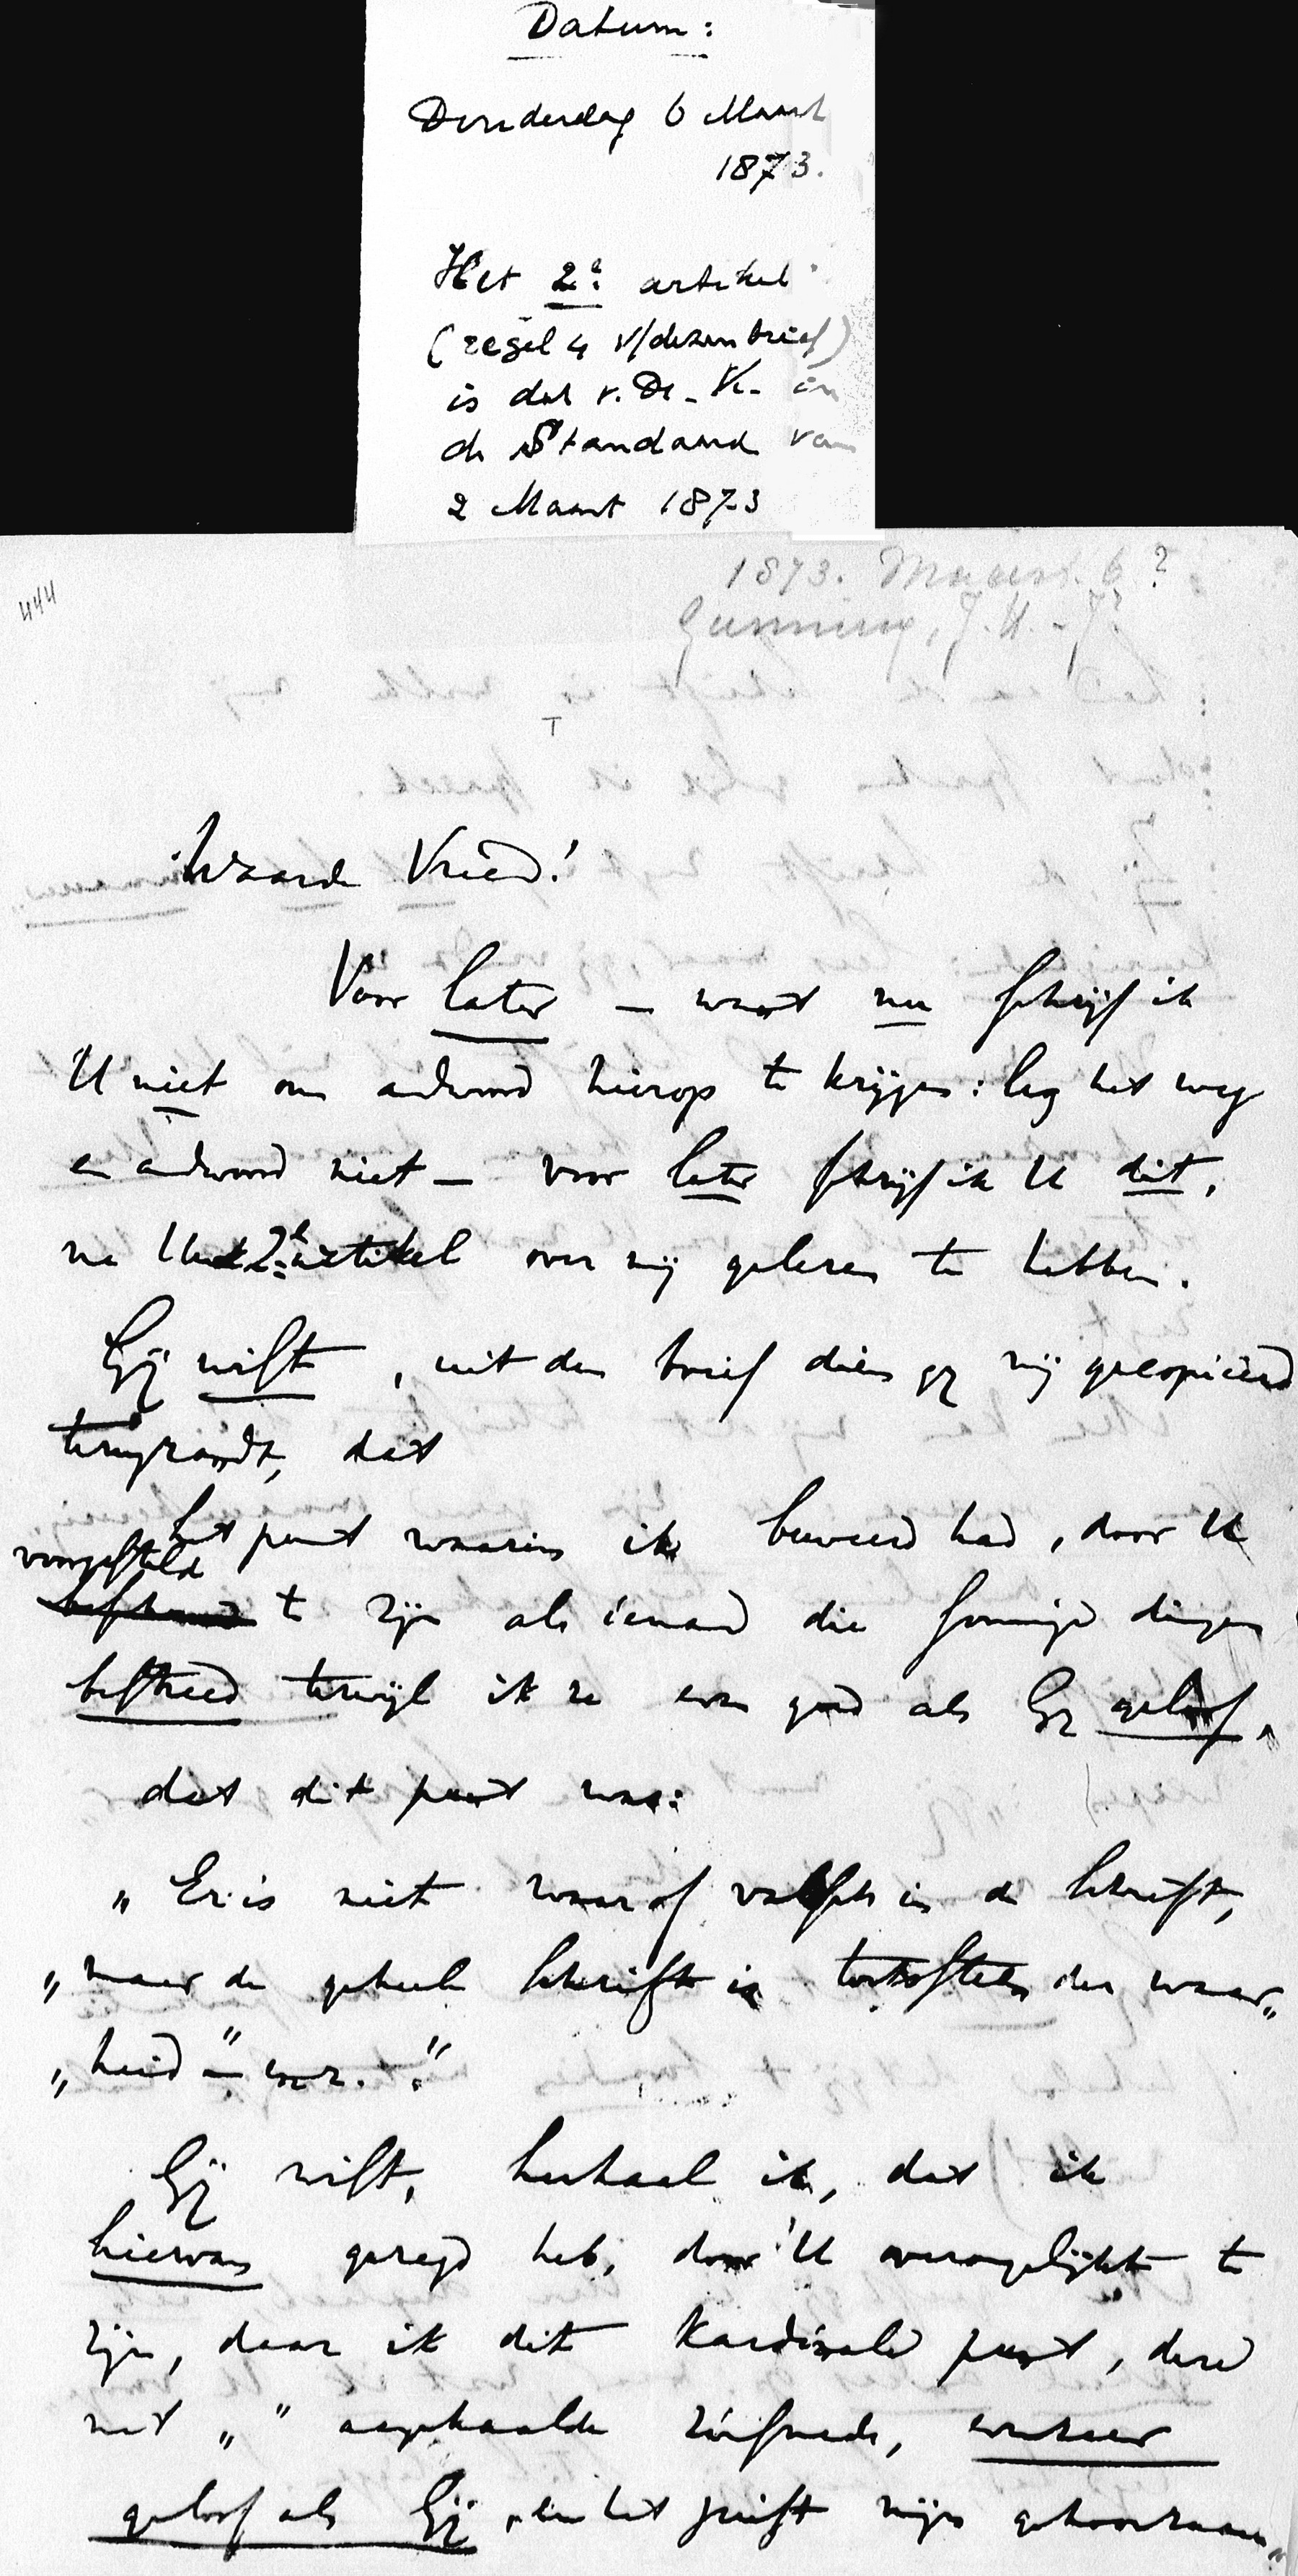 Datum:
Donderdag 6 Maart
1873.
Het 2e artikel
(regel 4 v/dezen brief)
is dat v. Dr. K. in
de Standaard van
2 Maart 1873
444
1873. Maart. 6?
Gunning, J.H. Jr
T
Waarde Vriend!
Voor later — want nu schrijf ik
U niet om andwoord hierop te krijgen: leg het weg
en andwoord niet — voor later schrijf ik U dit,
na Uw 2e artikel over mij gelezen te hebben.
Gij wist, uit den brief dien gij mij gecopieerd
terugzondt, dat
het punt waarin ik beweerd had, door U
voorgesteld
te zijn als iemand die sommige dingen
bestreed terwijl ik ze even goed als Gij geloof,
dat dit punt was:
„Er is niet waar of valsch in de Schrift,
„maar de geheele Schrift is der waar„
„heid" — enz."
Gij wist, herhaal ik, dat ik
hiervan gezegd heb, door U verongelijkt te
zijn, daar ik dit kardinale punt, deze
met „ " aangehaalde zinsnede, evenzeer
geloof als Gij, en het juist mijn gehoorzaam„